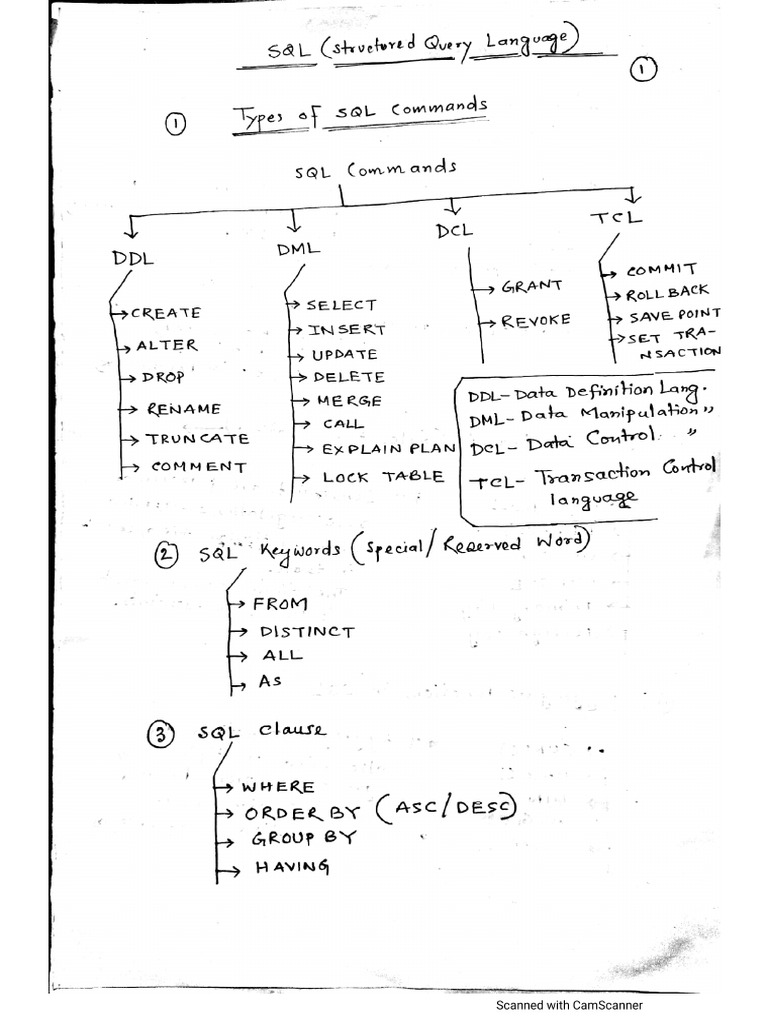 SQL (Structured Query Language)
1
1 Types of SQL Commands
SQL Commands
DDL DML DCL TCL
CREATE
ALTER
DROP
RENAME
TRUNCATE
COMMENT
SELECT
INSERT
UPDATE
DELETE
MERGE
CALL
EXPLAIN PLAN
LOCK TABLE
GRANT
REVOKE
COMMIT
ROLL BACK
SAVE POINT
SET TRA-
NSACTION
DDL - Data Definition Lang.
DML - Data Manipulation "
DCL - Data Control "
TCL - Transaction Control
language
2 SQL Keywords (Special/Reserved Word)
FROM
DISTINCT
ALL
AS
3 SQL Clause
WHERE
ORDER BY (ASC/DESC)
GROUP BY
HAVING
Scanned with CamScanner